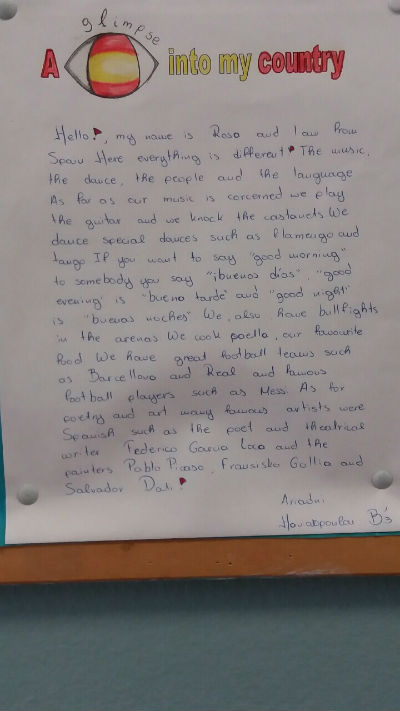 A glimpse into my country
Hello!, my name is Rosa and I am from
Spain Here everything is different! The music,
the dance, the people and the language
As for as our music is concerned we play
the guitar and we knock the castanets We
dance special dances such as flamengo and
tango If you want to say "good morning"
to somebody you say "¡buenos días", "good
evening" is "bueno tarde" and "good night"
is "buenas noches" We, also have bullfights
in the arenas We cook paella, our favourite
food We have great football teams such
as Barcellona and Real and famous
football players such as Messi As for
poetry and art many famous artists were
Spanish such as the poet and theatrical
writer Federico Garcia Loca and the
painters Pablo Picaso, Fransisko Gollia and
Salvador Dali!
Ariadni
B'3